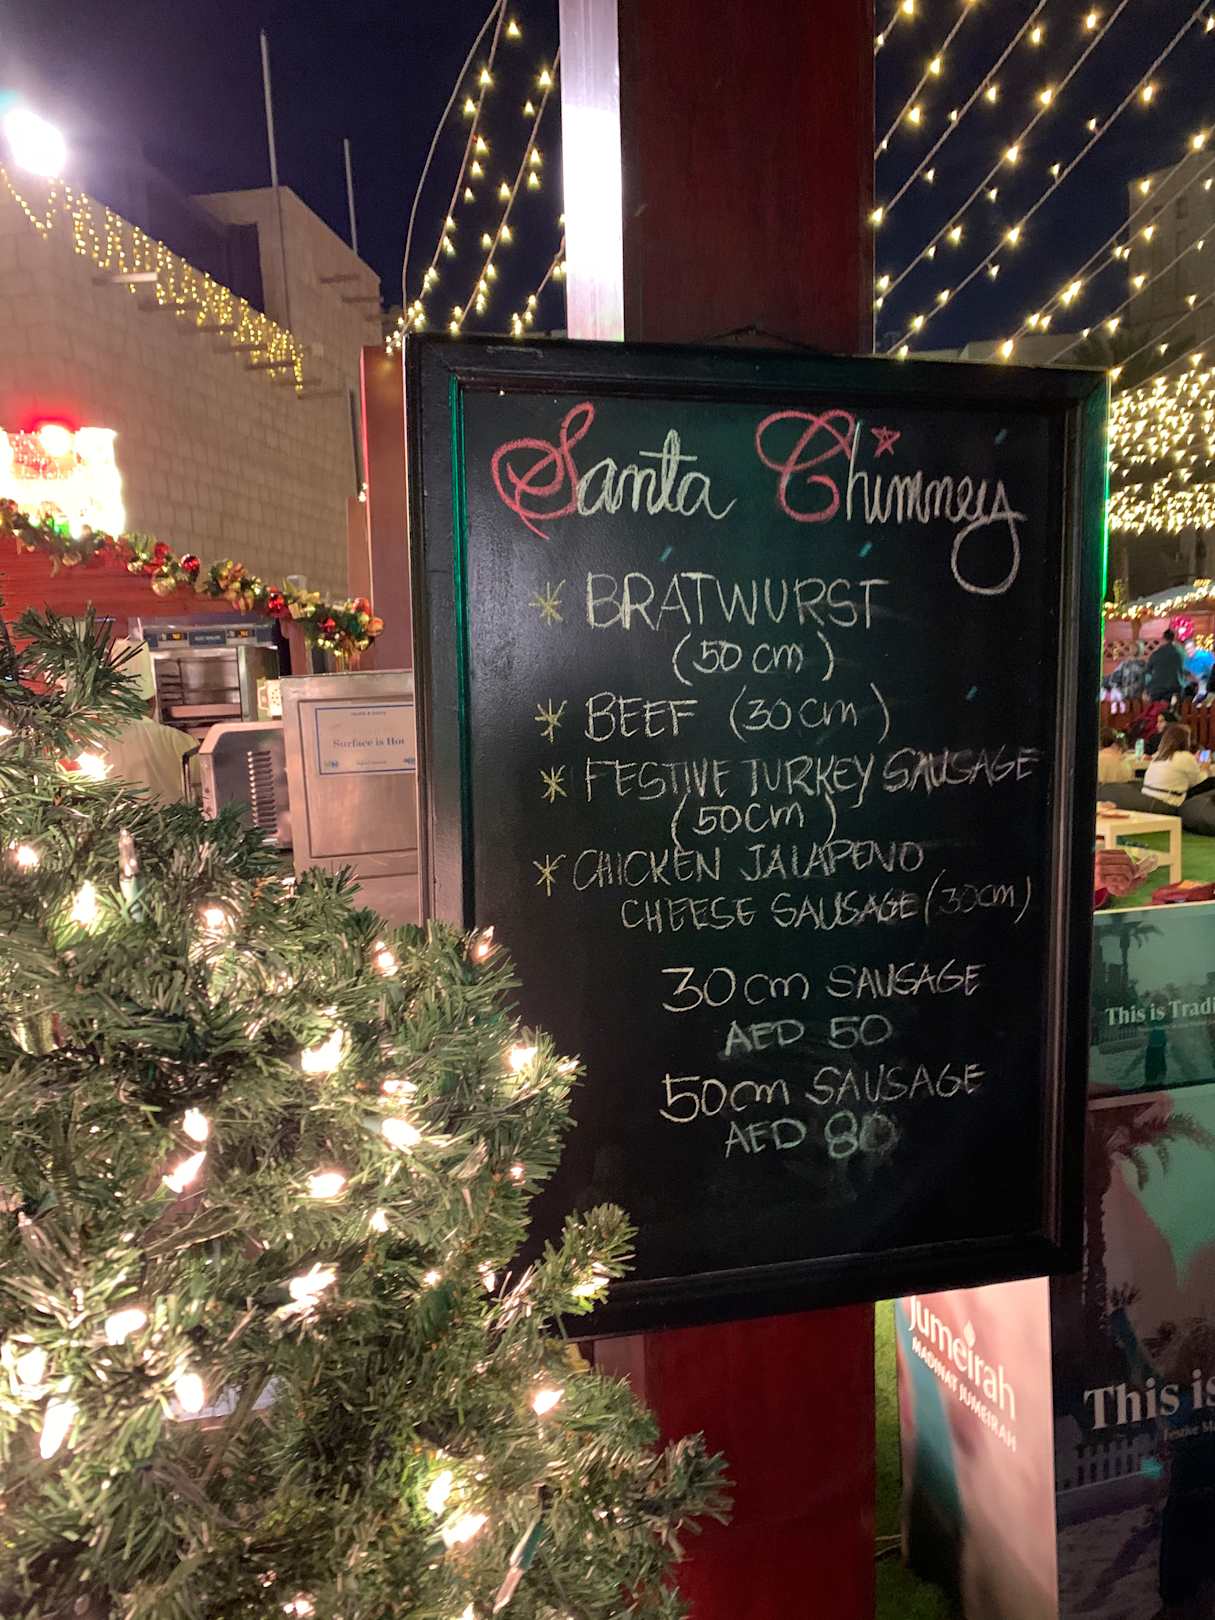 Santa Chimney
BRATWURST
(50 cm)
BEEF (30cm)
FESTIVE TURKEY SAUSAGE
(50cm)
CHICKEN JALAPENO
CHEESE SAUSAGE (30cm)
30cm SAUSAGE
AED 50
50cm SAUSAGE
AED 80
Surface is Hot
This is Tradi
Jumeirah
MADINAT JUMEIRAH
This is
Festive M